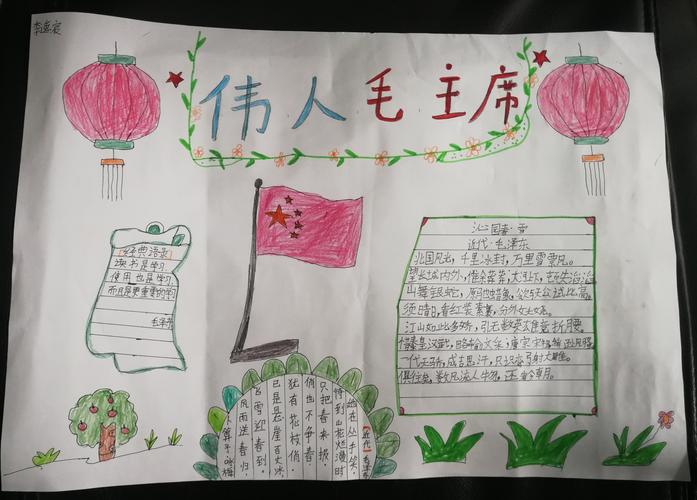 李
伟人毛主席
经典语录
读书是学习，
使用也是学习，
而且是更重要的学习
毛泽东
沁园春·雪
近代·毛泽东
北国风光，千里冰封，万里雪飘。
望长城内外，惟余莽莽，大河上下，顿失滔滔
山舞银蛇，原驰蜡象，欲与天公试比高。
须晴日，看红装素裹，分外妖娆。
江山如此多娇，引无数英雄竞折腰。
惜秦皇汉武，略输文采；唐宗宋祖
一代天骄，成吉思汗，只识弯弓射大雕。
俱往矣，数风流人物，还看今朝。
卜算子·咏梅
风雨送春归，
飞雪迎春到。
已是悬崖百丈冰，
犹有花枝俏
俏也不争春，
只把春来报，
待到山花烂漫时
她在丛中笑。
近代